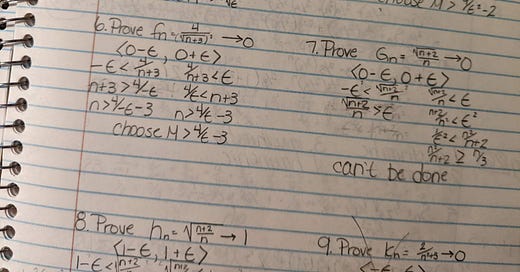 choose M > 4/ε² - 2
6. Prove fn = 4/(√n+3)² → 0
⟨0-ε, 0+ε⟩
-ε < 4/n+3   4/n+3 < ε
n+3 > 4/-ε   4/ε < n+3
n > 4/-ε - 3   n > 4/ε - 3
choose M > 4/ε - 3
7. Prove Gn = √n+2/n → 0
⟨0-ε, 0+ε⟩
-ε < √n+2/n   √n+2/n < ε
√n+2/n > ε   n+2/n² < ε²
1/ε² < n²/n+2
n²/n+2 ≥ n/3
can't be done
8. Prove hn = √n+2/n → 1
⟨1-ε, 1+ε⟩
1-ε < √n+2/n
9. Prove kn = → 0